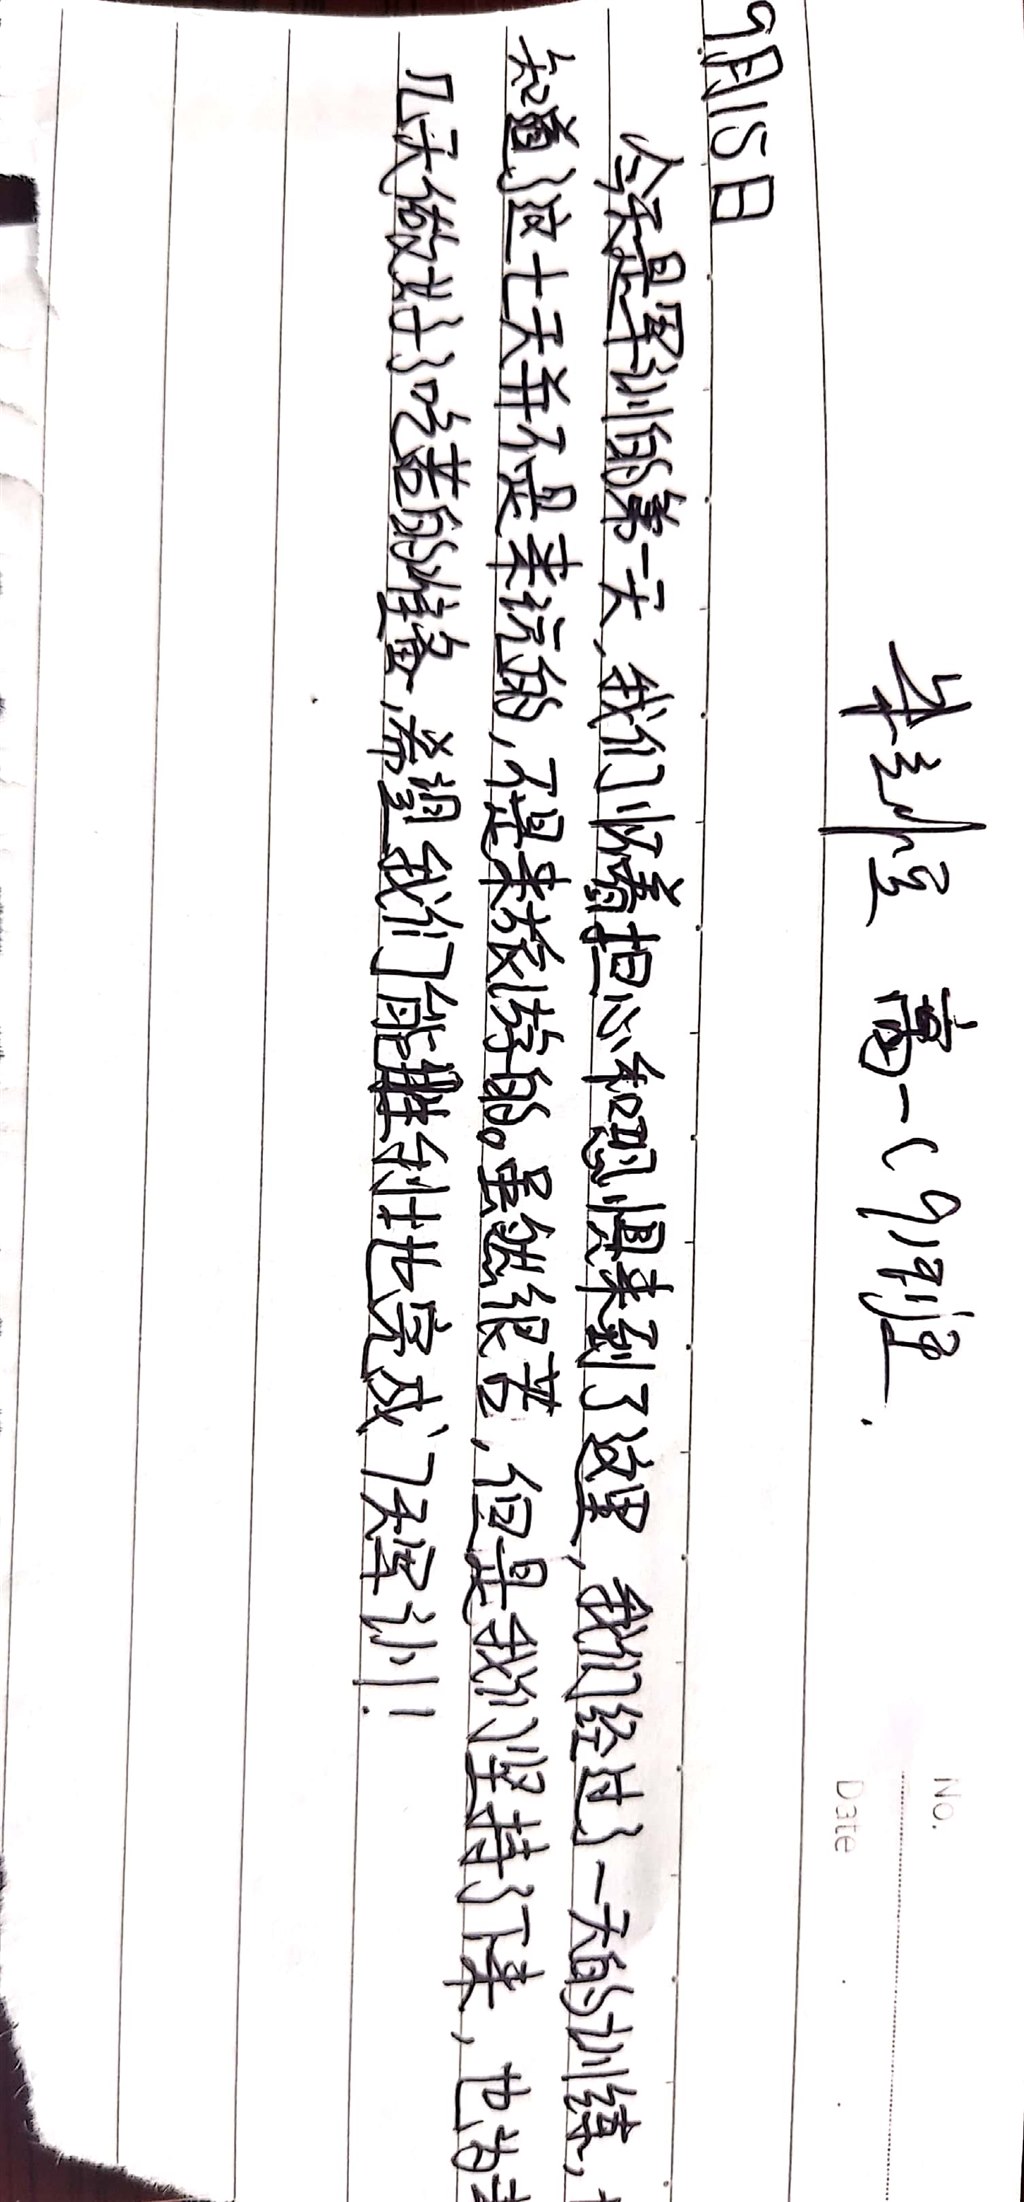 高一(9)班
No.
Date
9月15日
今天是军训的第一天、我们怀着担心和恐惧来到了这里,我们经过了一天的训练,
知道了这七天并不是来玩的,不是来放松的。虽然很苦,但是我们坚持了下来,也为
几天做好了吃苦的准备,希望我们能胜利地完成7天军训!